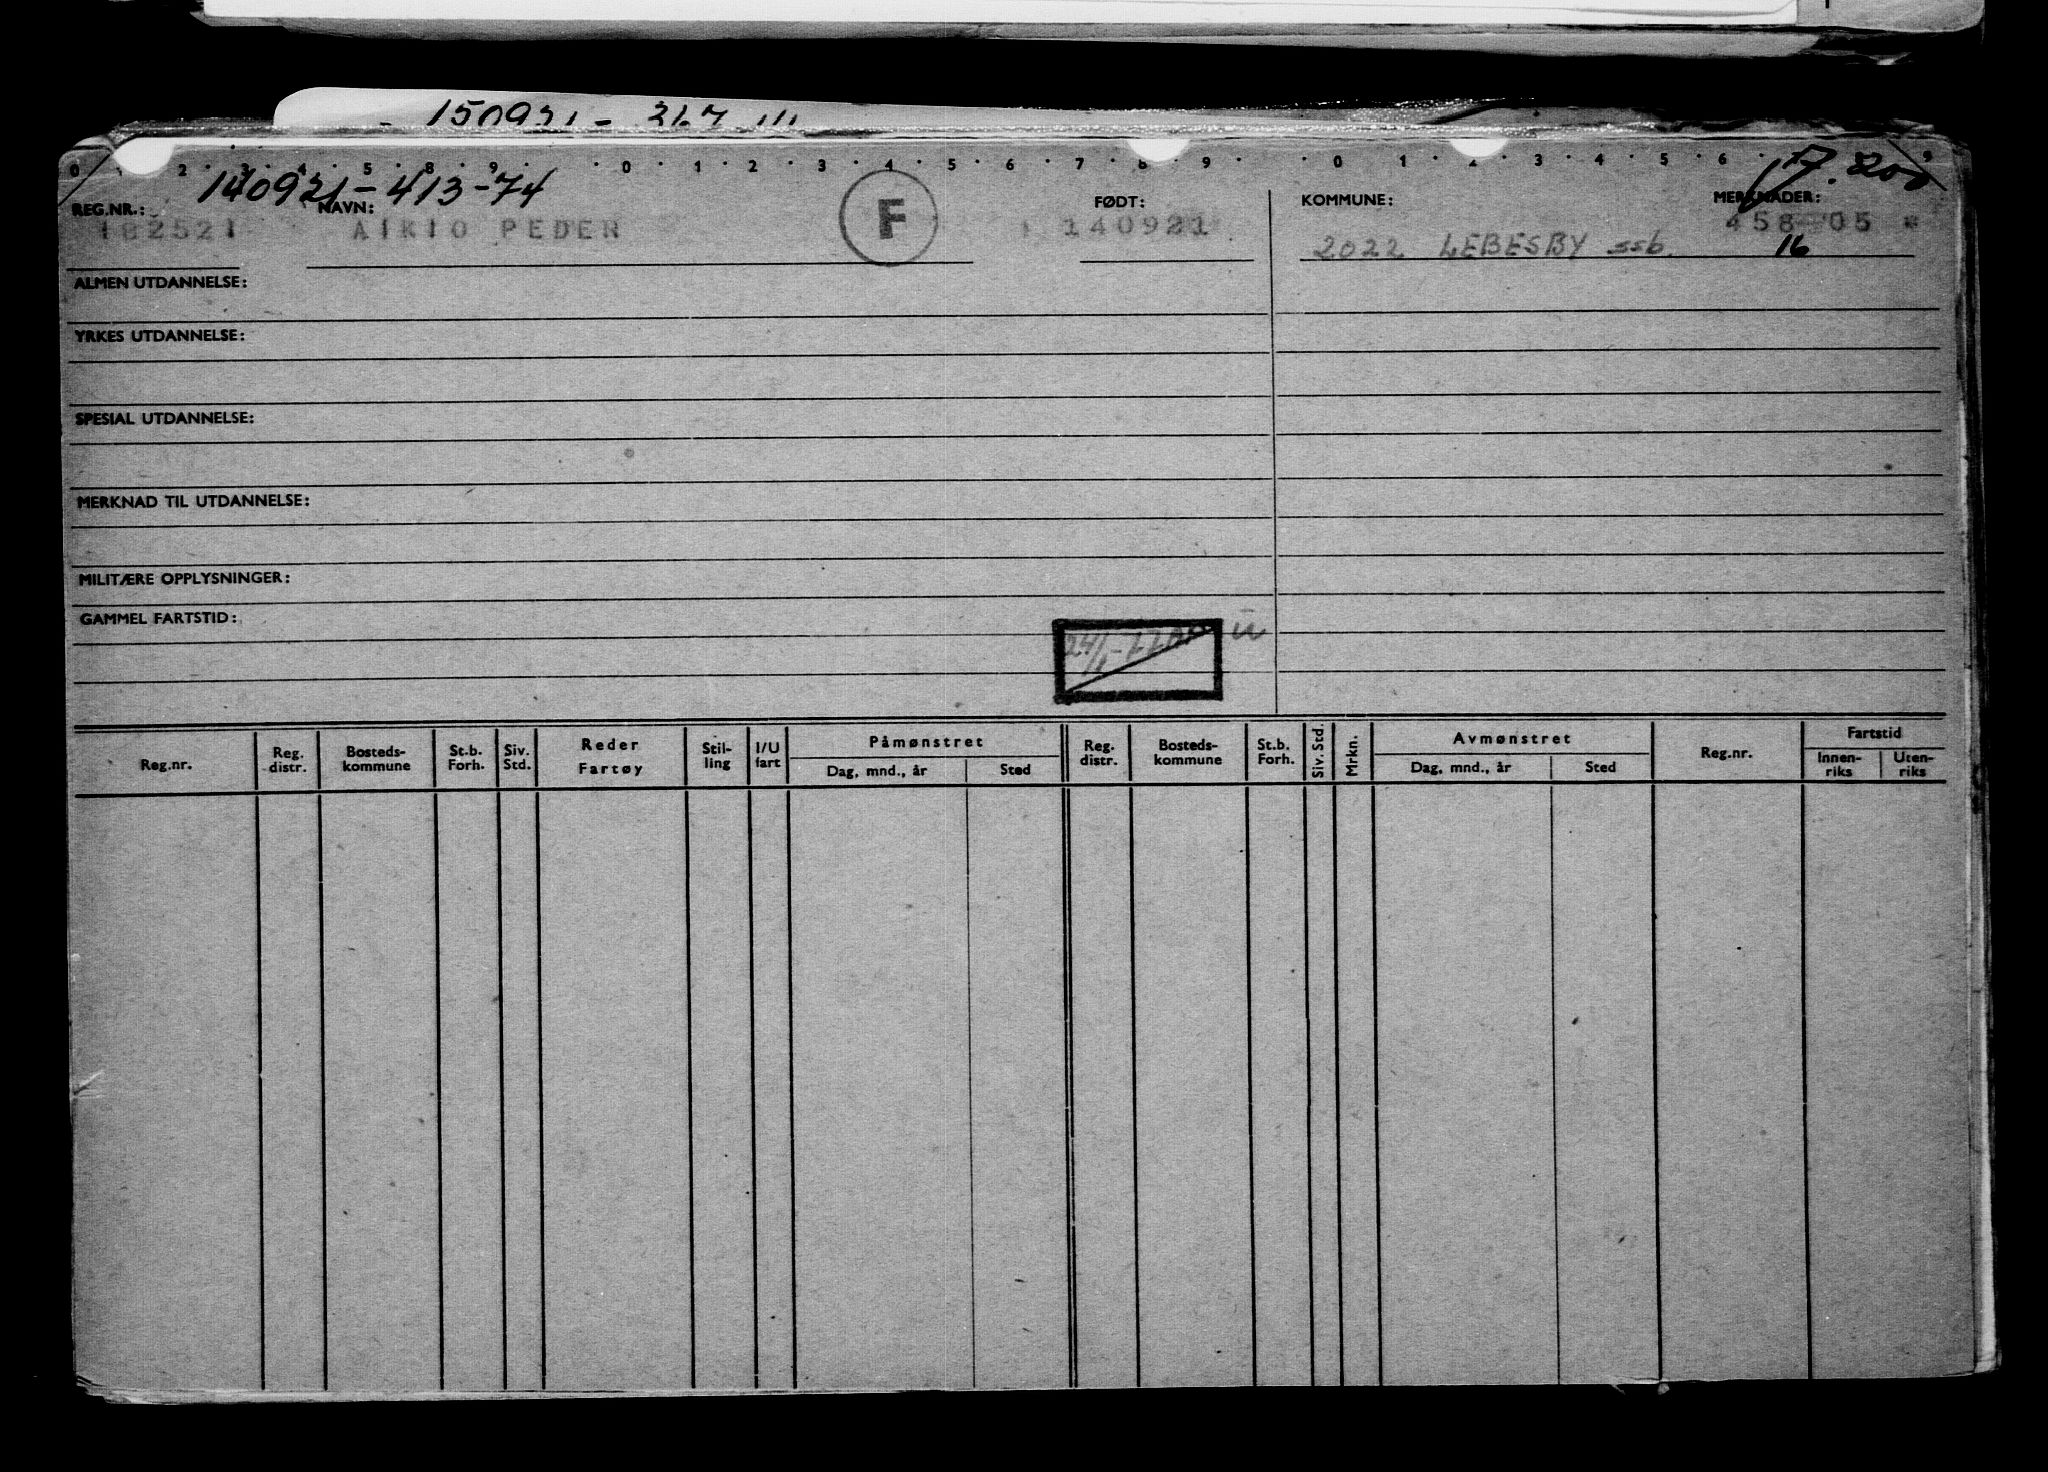 150921 -
0 1 2 3 4 5 8 9 0 1 2 3 4 5 6 7 8 9 0 1 2 3 4 5 6 9
140921-413-74 17.200
REG.NR.: NAVN: F FØDT: KOMMUNE: MERKNADER:
182521 AIKIO PEDER 140921 2022 LEBESBY ssb. 458 05 *
16
ALMEN UTDANNELSE:
YRKES UTDANNELSE:
SPESIAL UTDANNELSE:
MERKNAD TIL UTDANNELSE:
MILITÆRE OPPLYSNINGER:
GAMMEL FARTSTID:
Reg.nr. Reg. distr. Bosteds- kommune St.b. Forh. Siv. Std. Reder Fartøy Stil- ling I/U fart Påmønstret Dag, mnd., år Sted Reg. distr. Bosteds- kommune St.b. Forh. Siv. Std. Mrkn. Avmønstret Dag, mnd., år Sted Reg.nr. Fartstid Innen- riks Uten- riks